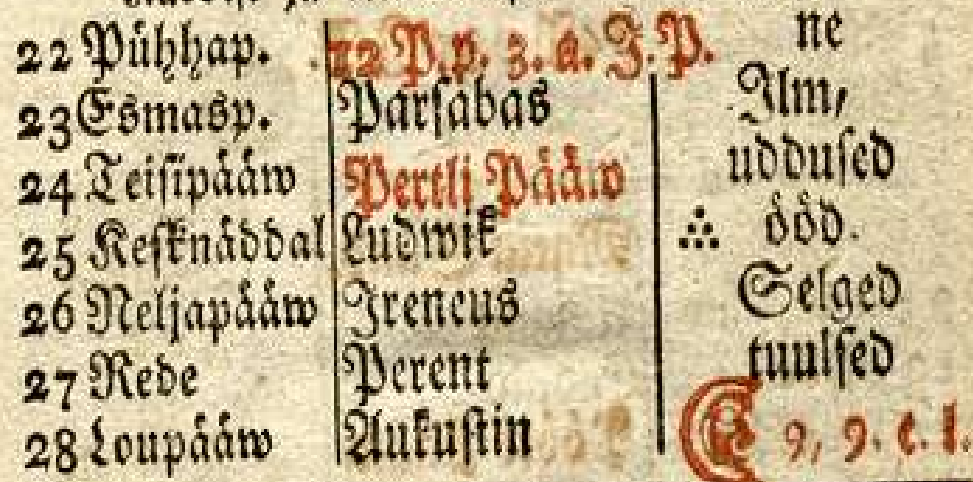 22 Pühhap. 12 P. p. 3. K. J. P. ne
23 Esmasp. Parsabas Ilm,
24 Teisipääw Pertli Pääw uddused
25 Kesknäddal Ludwik ööd.
26 Neljapääw Ireneus Selged
27 Rede Perent tuulsed
28 Loupääw Aukustin 9, 9. e. l.